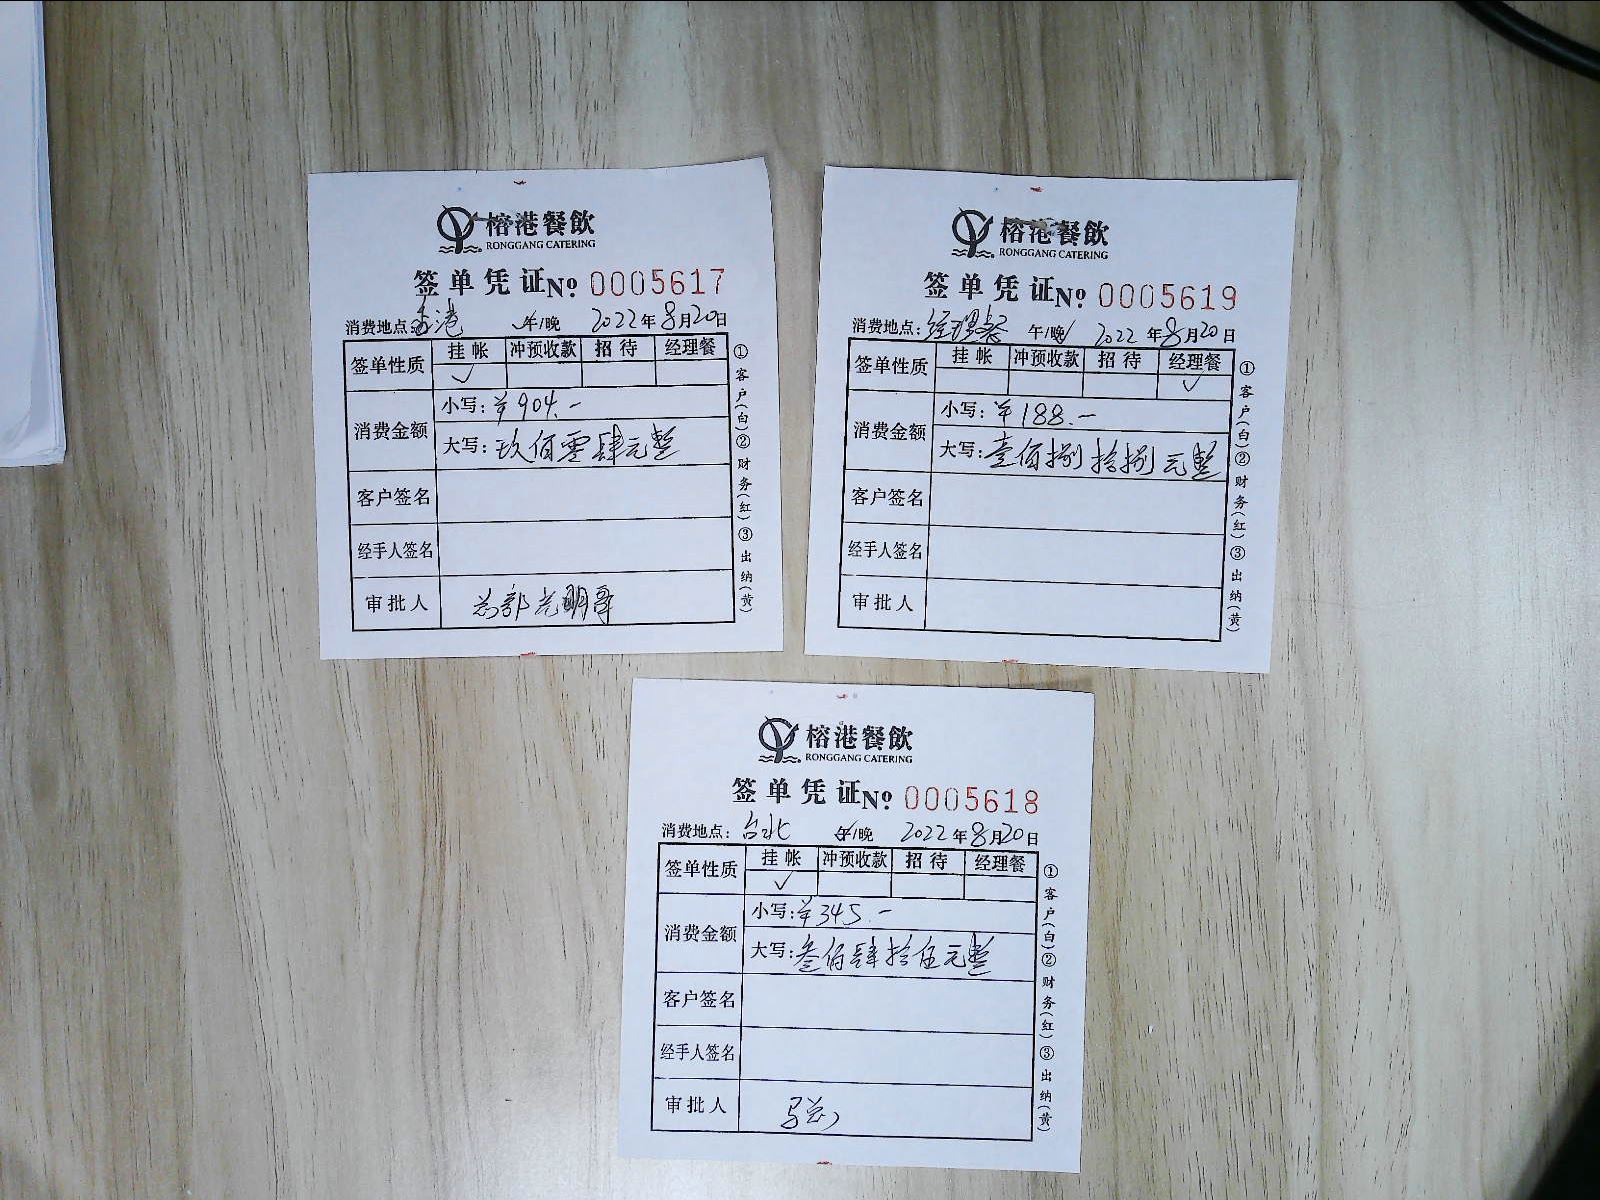 榕港餐飲
RONGGANG CATERING
签单凭证№ 0005617
消费地点:香港 午/晚 2022年8月20日
签单性质 挂帐 冲预收款 招待 经理餐
✓
消费金额
小写:¥904.-
大写:玖佰零肆元整
客户签名
经手人签名
审批人 总部光明哥
①客户(白)②财务(红)③出纳(黄)
榕港餐飲
RONGGANG CATERING
签单凭证№ 0005619
消费地点:经理餐 午/晚 2022年8月20日
签单性质 挂帐 冲预收款 招待 经理餐
✓
消费金额
小写:¥188.-
大写:壹佰捌拾捌元整
客户签名
经手人签名
审批人
①客户(白)②财务(红)③出纳(黄)
榕港餐飲
RONGGANG CATERING
签单凭证№ 0005618
消费地点:台北 午/晚 2022年8月20日
签单性质 挂帐 冲预收款 招待 经理餐
✓
消费金额
小写:¥345.-
大写:叁佰肆拾伍元整
客户签名
经手人签名
审批人 马总
①客户(白)②财务(红)③出纳(黄)